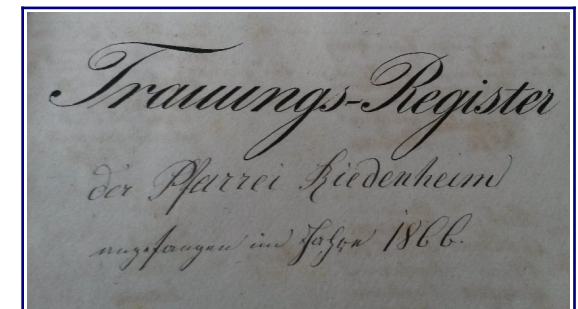 Trauungs-Register
der Pfarrei Riedenheim
angefangen im Jahre 1866.